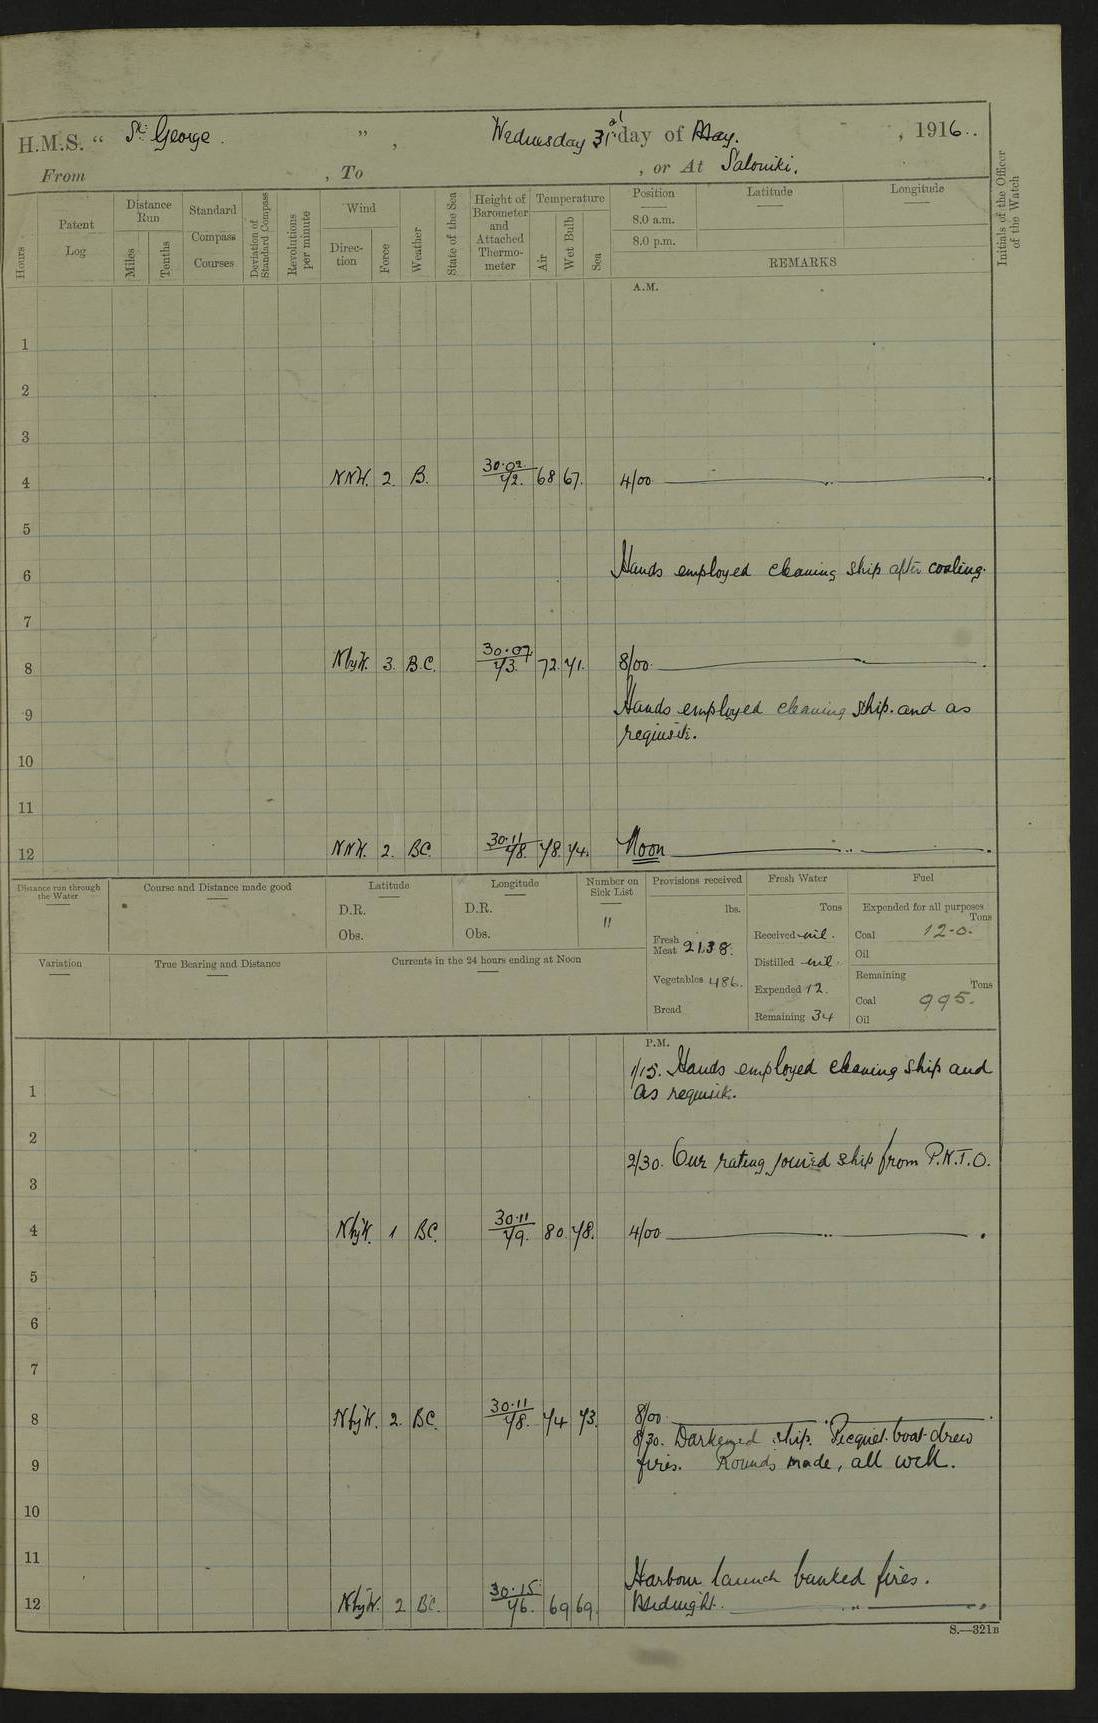 H.M.S. “ St. George. ” , Wednesday 31st day of May. , 1916..
From , To , or At Saloniki.
Hours
Patent Log
Distance Run
Miles
Tenths
Standard Compass Courses
Deviation of Standard Compass
Revolutions per minute
Wind
Direc-tion
Force
Weather
State of the Sea
Height of Barometer and Attached Thermo-meter
Temperature
Air
Wet Bulb
Sea
Position Latitude Longitude
8.0 a.m.
8.0 p.m.
REMARKS
Initials of the Officer of the Watch
A.M.
1
2
3
4 NNW. 2. B. 30.02 72. 68 67. 4/00
5
6 Hands employed cleaning ship after coaling.
7
8 NbyW. 3. B.C. 30.07 73. 72. 71. 8/00
9 Hands employed cleaning ship. and as
requisite.
10
11
12 NNW. 2. BC. 30.11 78. 78. 74. Noon
Distance run through the Water
Course and Distance made good
Latitude
D.R.
Obs.
Longitude
D.R.
Obs.
Number on Sick List
11
Provisions received
lbs.
Fresh Meat 2138.
Vegetables 486.
Bread
Fresh Water
Tons
Received nil.
Distilled nil.
Expended 12.
Remaining 34
Fuel
Expended for all purposes
Tons
Coal 12-0.
Oil
Remaining
Tons
Coal 995.
Oil
Variation
True Bearing and Distance
Currents in the 24 hours ending at Noon
P.M.
1/15. Hands employed cleaning ship and
1 as requisite.
2
2/30. One rating joined ship from P.N.T.O.
3
4 NbyW. 1 BC. 30.11 79. 80. 78. 4/00
5
6
7
8 NbyW. 2. BC. 30.11 78. 74 73. 8/00
8/30. Darkened ship. Picquet boat drew
9 fires. Rounds made, all well.
10
11
Harbour launch banked fires.
12 NbyW. 2 BC. 30.15 76. 69 69. Midnight.
S.—321B